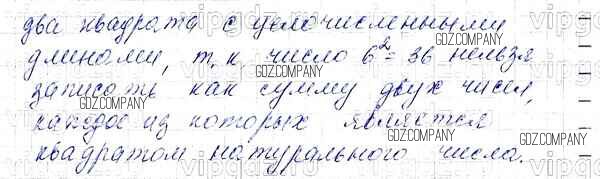 два квадрата с целочисленными
длинами, т. к число 6²= 36 нельзя
записать как сумму двух чисел,
каждое из которых является
квадратом натурального числа.
GDZ.COMPANY
GDZ.COMPANY
GDZ.COMPANY
GDZ.COMPANY
GDZ.COMPANY
GDZ.COMPANY